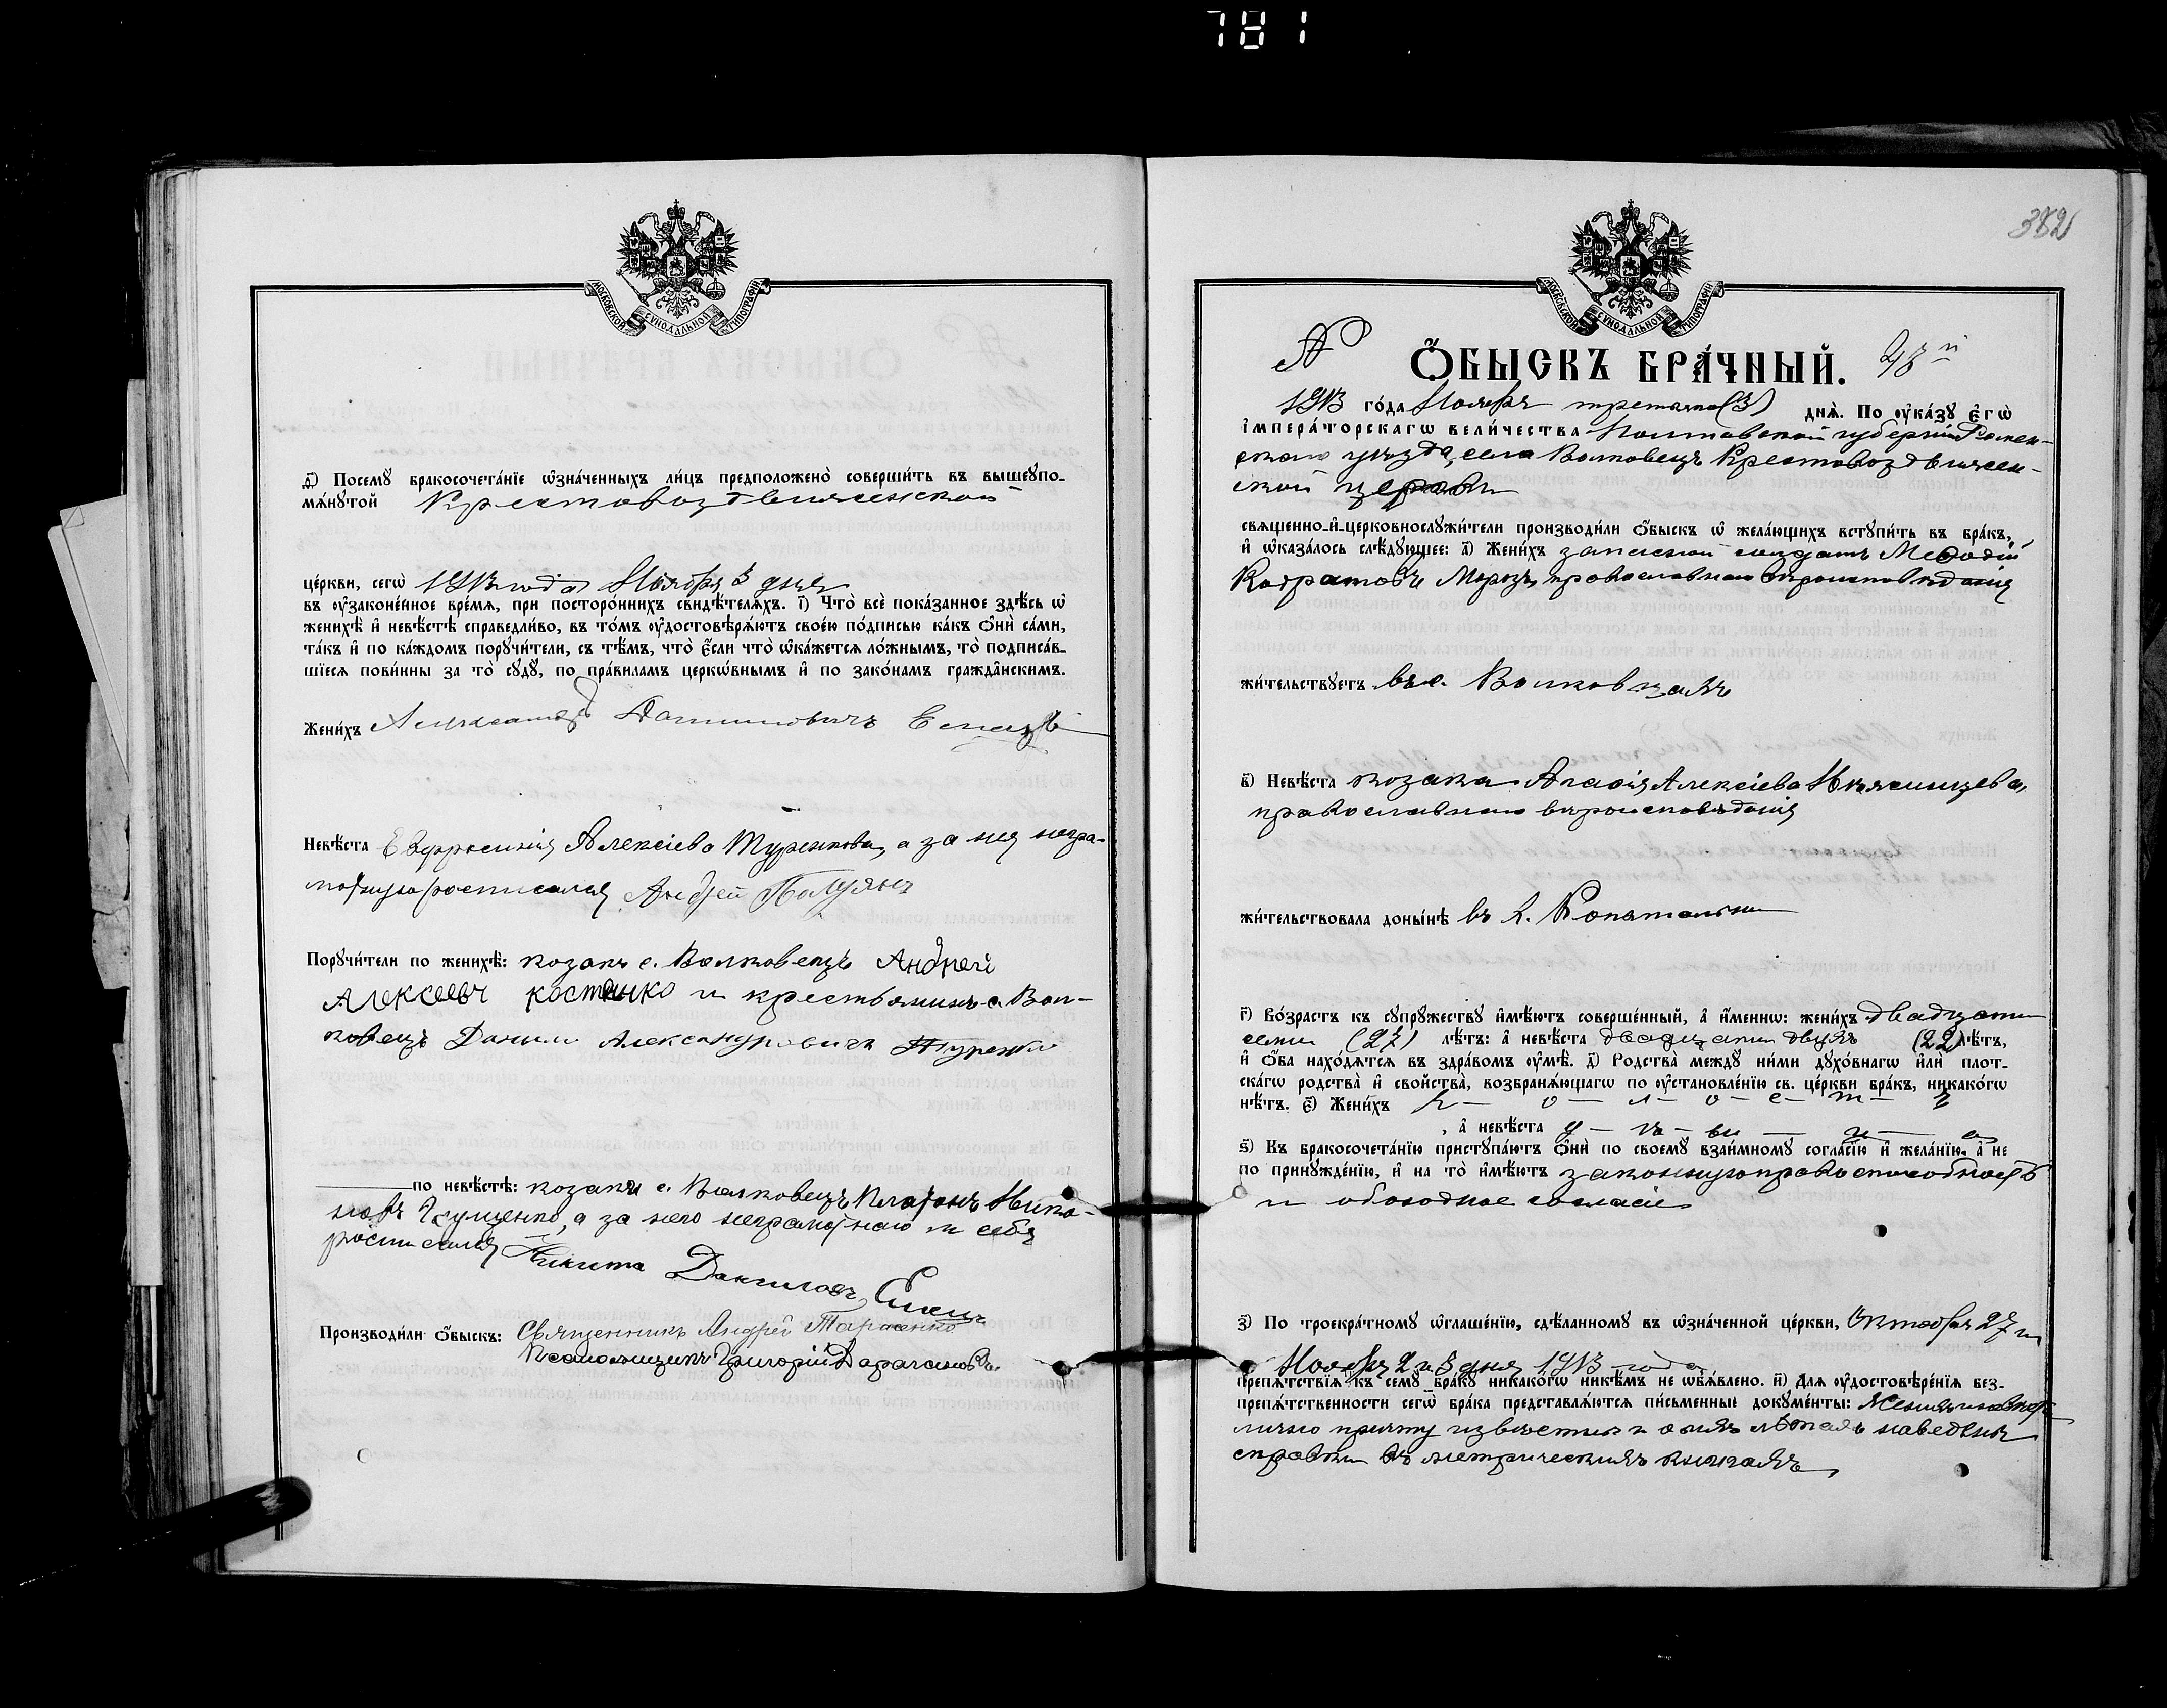 781
МОСКОВСКОЙ СѴНОДАЛЬНОЙ ТИПОГРАФІИ
ѳ҃) Посемꙋ̀ бракосочета́нїе ѡ҆зна́ченныхъ ли́цъ предположено̀ соверши́ть въ вышеꙋпо-
мѧ́нꙋтой Крестовоздвиженской
це́ркви, сегѡ̀ 1913 года Ноября 3 дня
въ ᲂу҆законе́нное вре́мѧ, при посторо́ннихъ свидѣ́телѧхъ. і҃) Что̀ всѐ пока́занное здѣ́сь ѡ҆
женихѣ̀ и҆ невѣ́стѣ справедли́во, въ то́мъ ᲂу҆достовѣрѧ́ютъ своею́ по́дписью ка́къ ѻ҆нѝ са́ми,
та́къ и҆ по ка́ждомъ порꙋчи́тели, съ тѣ́мъ, что̀ є҆́сли что̀ ѡ҆ка́жетсѧ ло́жнымъ, то̀ подписа́в-
шїесѧ пови́нны за то̀ сꙋдꙋ̀, по пра́виламъ церкѡ́внымъ и҆ по зако́намъ гражда́нскимъ.
Жени́хъ Александръ Данииловичъ Елецъ
Невѣ́ста Евфросинія Алексіева Туренкова, а за нея негра-
мотную росписался Андрей Полуянъ
Порꙋчи́тели по женихѣ̀: козакъ с. Волковецъ Андрей
Алексеевъ Костенко и крестьянинъ с. Вол-
ковецъ Даниил Александровичъ Туренко
по невѣ́стѣ: козакъ с. Волковецъ Платонъ Ника-
норъ Грищенко, а за него неграмотнаго и себя
росписался Никита Данииловъ Елецъ
Производи́ли ѻ҆́быскъ: Священникъ Андрей Тарасенко
Псаломщикъ Григорій
382
МОСКОВСКОЙ СѴНОДАЛЬНОЙ ТИПОГРАФІИ
№ Ѻ҆́БЫСКЪ БРА́ЧНЫЙ. 48й
1913 го́да Ноября третьяго (3) днѧ̀. По ᲂу҆ка́зꙋ Є҆гѡ̀
І҆мпера́торскагѡ вели́чества Полтавской губерніи Ромен-
скаго уѣзда, села Волковецъ Крестовоздвижен-
ской церкви
свѧщенно-и҆-церковнослꙋжи́тели производи́ли ѻ҆́быскъ ѡ҆ жела́ющихъ встꙋпи́ть въ бра́къ,
и҆ ѡ҆каза́лось слѣ́дꙋющее: а҃) Жени́хъ запасной солдатъ Меѳодій
Кодратовъ Морозъ, православнаго вѣроисповѣданія
жи́тельствꙋетъ въ с. Волковцахъ
в҃) Невѣ́ста козачка Агафія Алексіева
православнаго вѣроисповѣданія
жи́тельствовала доны́нѣ въ х.
г҃) Во́зрастъ къ сꙋпрꙋ́жествꙋ и҆мѣ́ютъ соверше́нный, а҆ и҆́меннѡ: жени́хъ двадцати
семи (27) лѣ́тъ: а҆ невѣ́ста двадцати двухъ (22) лѣ́тъ,
и҆ ѻ҆́ба нахо́дѧтсѧ въ здра́вомъ ᲂу҆мѣ̀. д҃) Родства̀ междꙋ ни́ми дꙋхо́внагѡ и҆лѝ плот-
ска́гѡ родства̀ и҆ сво́йства̀, возбранѧ́ющагѡ по ᲂу҆становле́нїю св. це́ркви бра́къ, никако́гѡ
нѣ́тъ. є҃) Жени́хъ х — о — л — о — с — т — ъ
, а҆ невѣ́ста д — ѣ — ви — ц — а
ѕ҃) Къ бракосочета́нїю пристꙋпа́ютъ ѻ҆нѝ по своемꙋ̀ взаи́мномꙋ согла́сїю и҆ жела́нїю, а҆ не
по принꙋжде́нїю, и҆ на то̀ и҆мѣ́ютъ законную правоспособность
и обоюдное согласіе
з҃) По троекра́тномꙋ ѡ҆глаше́нїю, сдѣ́ланномꙋ въ ѡ҆зна́ченной це́ркви, Октября 27 и
Ноября 2 и 3 дня 1913 года
препѧ́тствїѧ къ семꙋ̀ бра́кꙋ никако́гѡ никѣ́мъ не ѡ҆бъѧ́влено. и҃) Для ᲂу҆достовѣре́нїѧ без-
препѧ́тственности сегѡ̀ бра́ка представлѧ́ютсѧ пи́сьменные докꙋме́нты: Женихъ и невѣста
лично причту извѣстны и о ихъ лѣтахъ наведены
справки въ метрическихъ книгахъ